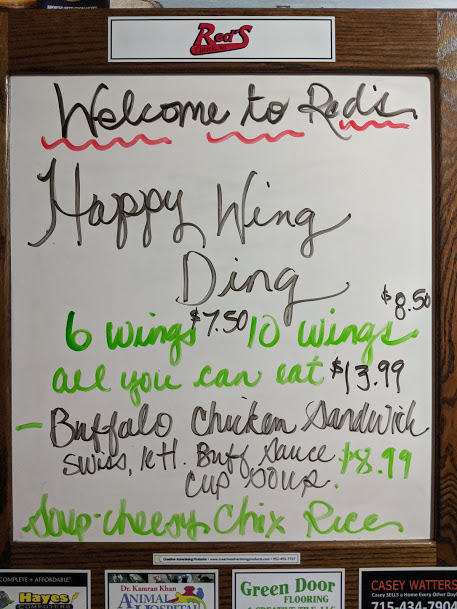 Red's
Welcome to Red's
Happy Wing
Ding
$8.50
6 wings $7.50 10 wings
all you can eat $13.99
- Buffalo Chicken Sandwich
Swiss, let. Buff Sauce $8.99
cup soup.
Soup-cheesy Chix Rice
Creative Advertising Products
COMPLETE + AFFORDABLE*
Hayes
COMPUTERS
Dr. Kamran Khan
ANIMAL
HOSPITAL
Green Door
FLOORING
CASEY WATTERS
Casey SELLS a Home Every Other Day
715-434-790